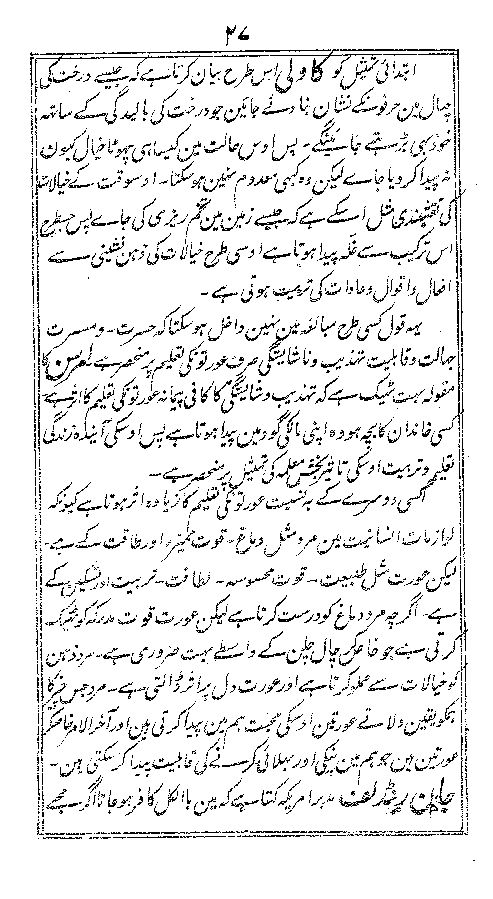 ۳۷
ابتدائی تمثیل کو کاولی اس طرح بیان کرتا ہے کہ جیسے درخت کی
چہال مین حرفونکے نشان بنا دئے جائین جو درخت کی بالیدگی کے ساتہہ
خود بہی بڑہتے جائینگے ۔ پس اوس حالت مین کیسا ہی چہوٹا خیال کیون
نہ پیدا کر دیا جاے لیکن وہ کبہی معدوم نہین ہو سکتا ۔ اوسوقت کے خیالات
کی نقشبندی مثل اسکے ہے کہ جیسے زمین مین تخم ریزی کی جاے پس جسطرح
اس ترکیب سے غلہ پیدا ہوتا ہے اوسی طرح خیالات کی ذہن نشینی سے
افعال و اقوال و عادات کی تربیت ہوتی ہے ۔
یہہ قول کسی طرح مبالغہ مین نہین داخل ہو سکتا کہ حسرت ۔ و مسرت
جہالت و قابلیت تہذیب و ناشایستگی صرف عورتونکی تعلیم پر منحصر ہے ایمرسن کا
مقولہ بہت ٹہیک ہے کہ تہذیب و شایستگی کا کافی پیمانہ عورتونکی تعلیم کا اثر ہے
کسی خاندان کا بچہ ہو وہ اپنی مانکی گود مین پیدا ہوتا ہے پس اوسکی آیندہ زندگی
تعلیم و تربیت اوسکی تاثیر بخش معلمہ کی تمثیل پر منحصر ہے ۔
کسی دوسرے کے بہ نسبت عورتونکی تعلیم کا زیادہ اثر ہوتا ہے کیونکہ
لوازمات انسانیت مین مرد مثل دماغ ۔ قوت ممیزہ اور طاقت کے ہے ۔
لیکن عورت مثل طبیعت ۔ قوت محسوسہ ۔ لطافت ۔ تربیت اور تسکین کے
ہے ۔ اگرچہ مرد دماغ کو درست کرتا ہے لیکن عورت قوت مدرکہ کو ٹہیک
کرتی ہے جو خاصکر چال چلن کے واسطے بہت ضروری ہے ۔ مرد ذہن
کو خیالات سے مملو کرتا ہے اور عورت دل پر اثر ڈالتی ہے ۔ مرد جس چیز کا
ہمکو یقین دلاتے عورتین اوسکی محبت ہم مین پیدا کرتی ہین اور آخرالامر خاصکر
عورتین ہین جو ہم مین نیکی اور بہلائی کرنے کی قابلیت پیدا کر سکتی ہین ۔
جان رینڈلف مدبر امریکہ کہتا ہے کہ مین بالکل کافر ہو جاتا اگر مجہے